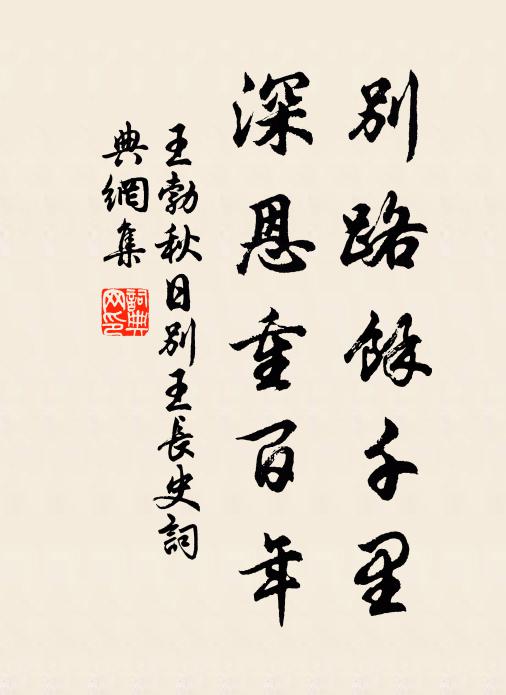 別路餘千里
深恩重百年
王勃秋日別王長史詞
典網集
詞典
网印